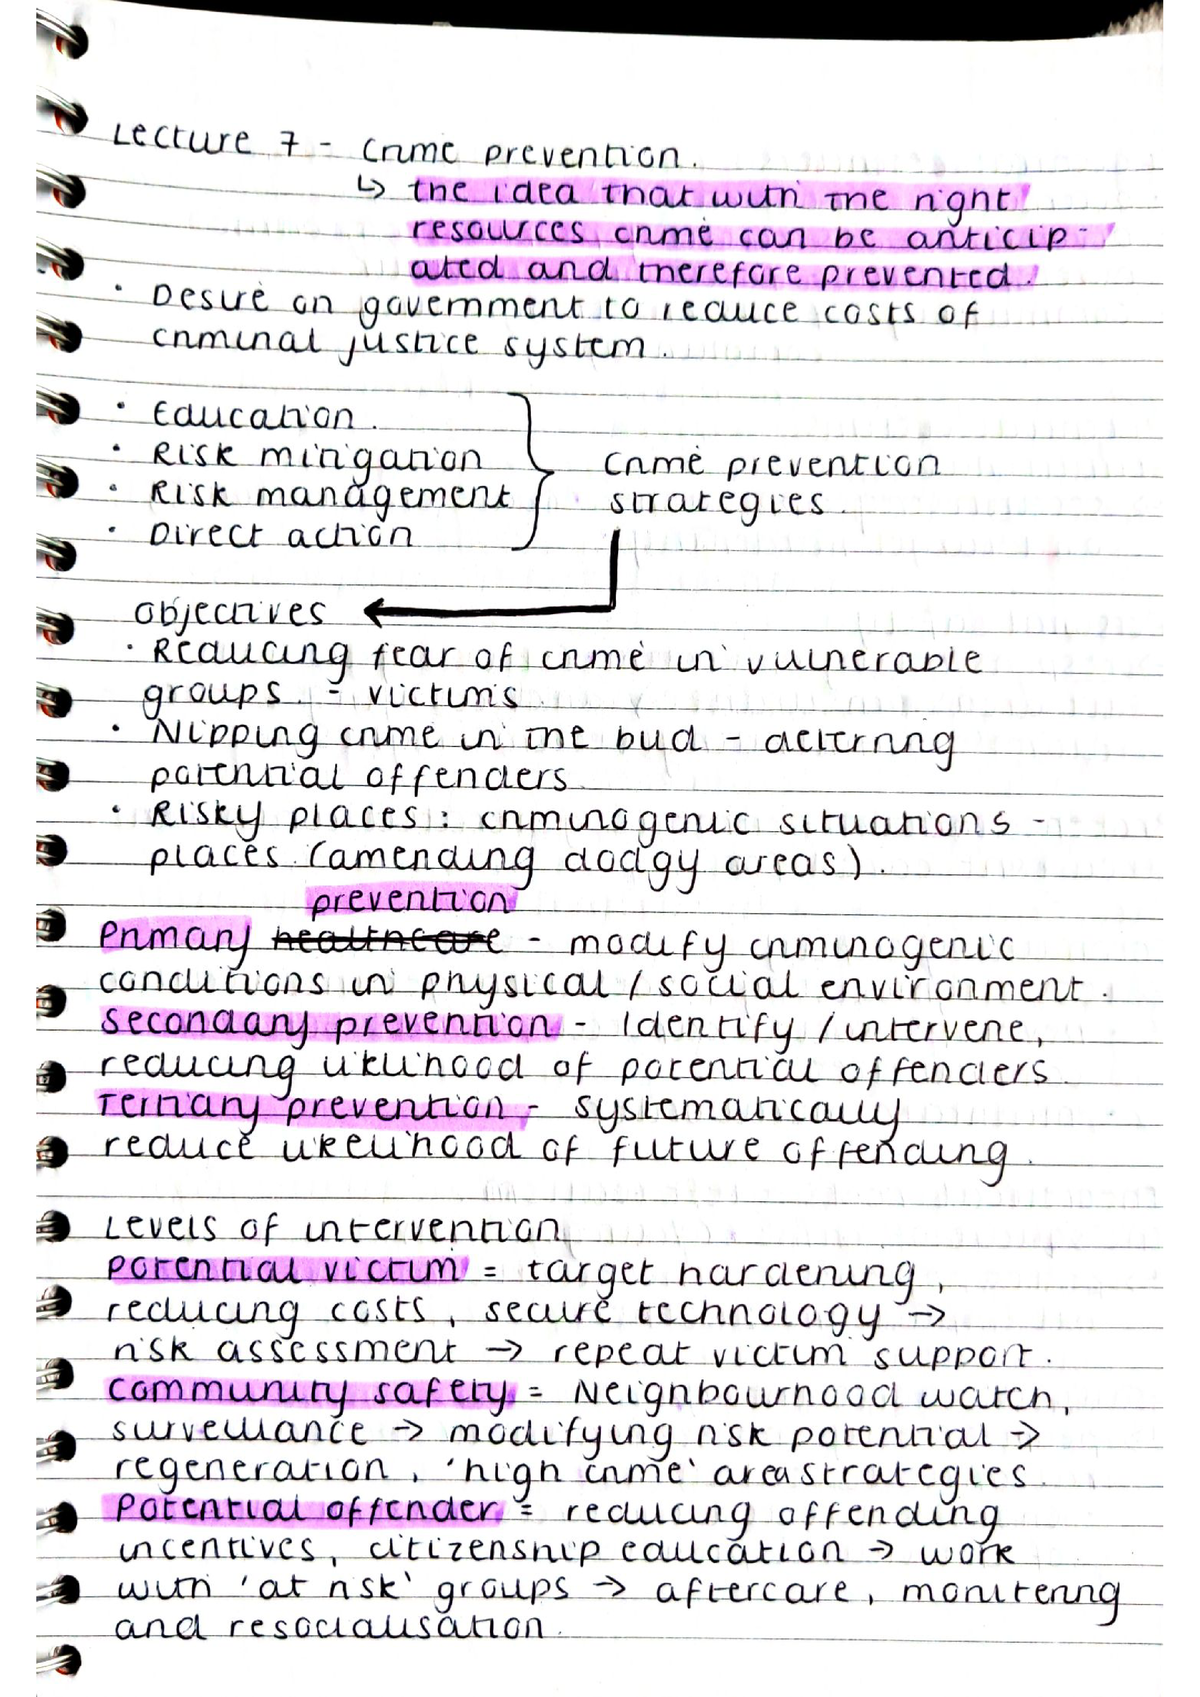 Lecture 7 - Crime prevention.
↳ the idea that with the right
resources crime can be anticip-
ated and therefore prevented.
· Desire on government to reduce costs of
criminal justice system.
· Education.
· Risk mitigation
· Risk management
· Direct action
Crime prevention
strategies.
Objectives
· Reducing fear of crime in vulnerable
groups. = victims
· Nipping crime in the bud - deterring
potential offenders
· Risky places: criminogenic situations -
places (amending dodgy areas).
prevention
Primary healthcare - modify criminogenic
conditions in physical / social environment.
Secondary prevention - Identify / intervene,
reducing liklihood of potential offenders.
Tertiary prevention - systematically
reduce likelihood of future offending.
Levels of intervention
Potential victim = target hardening,
reducing costs, secure technology →
risk assessment → repeat victim support.
Community safety = Neighbourhood watch,
surveillance → modifying risk potential →
regeneration, 'high crime' area strategies.
Potential offender = reducing offending
incentives, citizenship education → work
with 'at risk' groups → aftercare, monitering
and resocialisation.